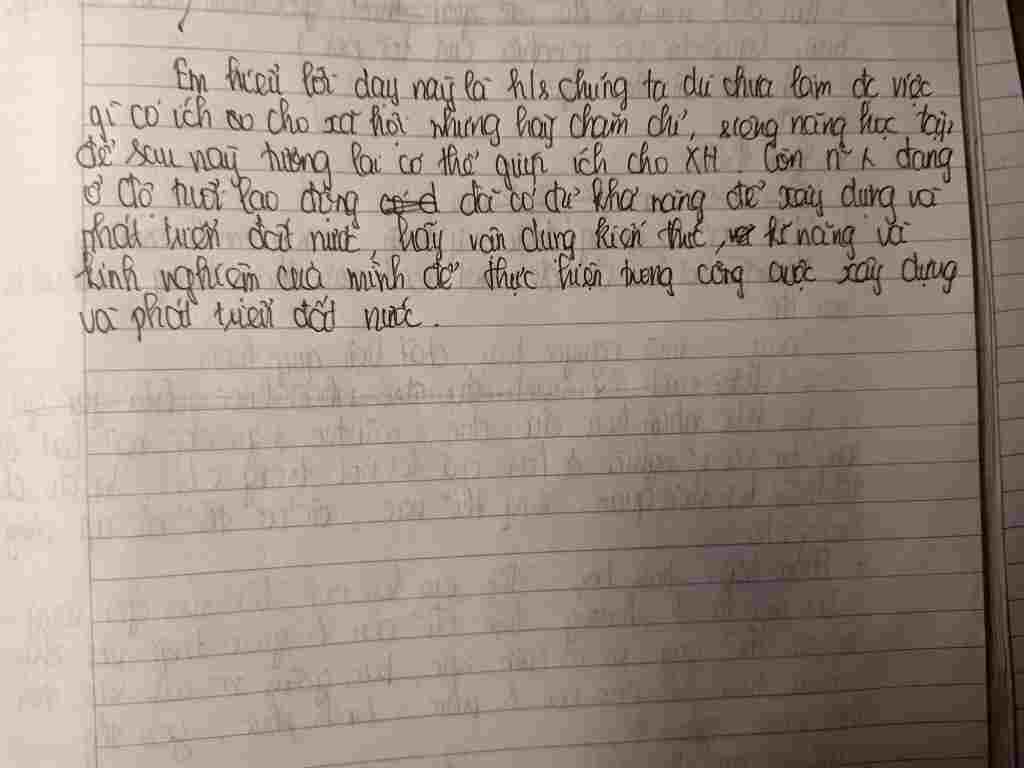 Em hiểu lời dạy này là h/s chúng ta dù chưa làm đc việc
gì có ích cho xã hội nhưng hãy chăm chỉ, siêng năng học tập,
để sau này tương lai có thể giúp ích cho XH. Còn n~ đang
ở độ tuổi lao động đã có đủ khả năng để xây dựng và
phát triển đất nước, hãy vận dụng kiến thức, kĩ năng và
kinh nghiệm của mình để thực hiện trong công cuộc xây dựng
và phát triển đất nước.